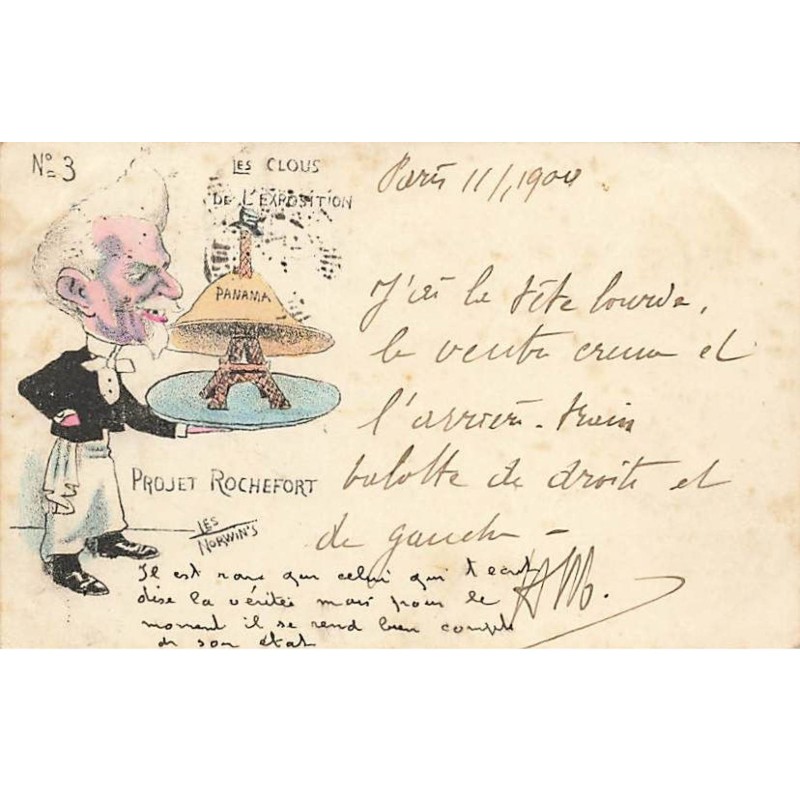 Nº 3
LES CLOUS
DE L'EXPOSITION
PANAMA
PROJET ROCHEFORT
LES
NORWIN'S
Paris 11/1, 1900
J'ai la tête lourde,
le ventre creux et
l'arrière-train
balotte de droite et
de gauche -
Il est rare que celui qui t'écrit
dise la vérité mais pour le
moment il se rend bien compte
de son état